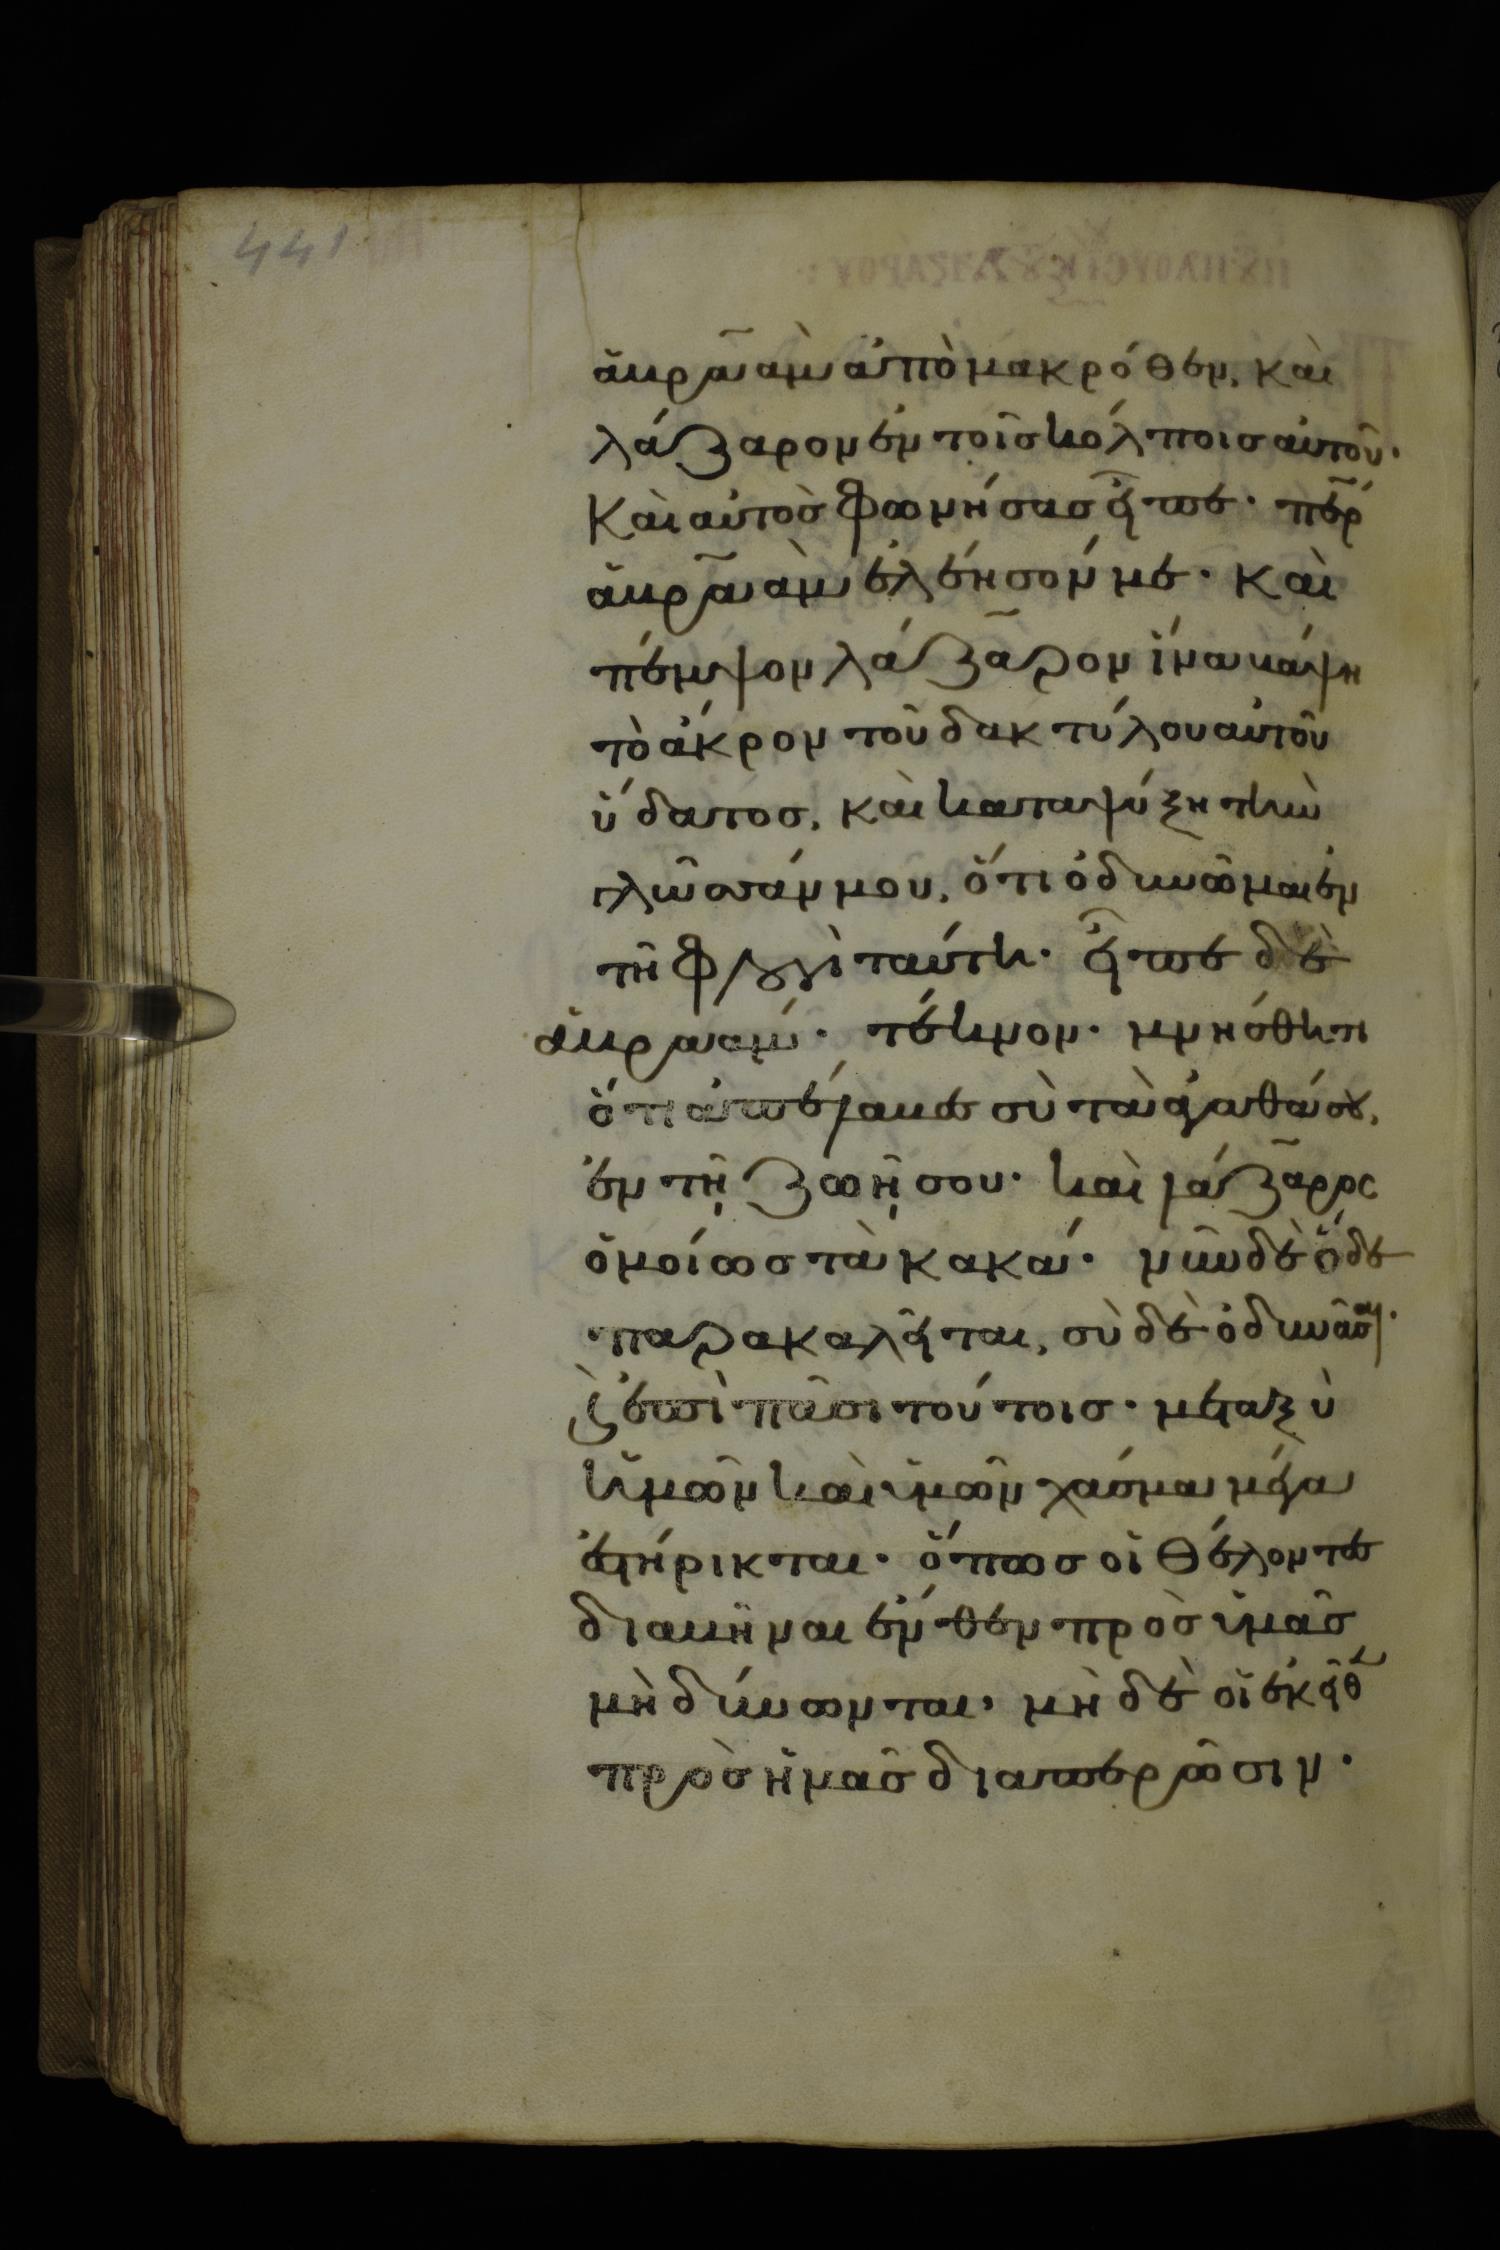 441
ἀβραὰμ ἀπὸ μακρόθεν, καὶ
λάζαρον ἐν τοῖς κόλποις αὐτοῦ·
Καὶ αὐτὸς φωνήσας εἶπε· πέρ
ἀβραὰμ ἐλέησόν με· καὶ
πέμψον λάζαρον ἵνα βάψη
τὸ ἄκρον τοῦ δακτύλου αὐτοῦ
ὕδατος, καὶ καταψύξη τὴν
γλῶσσάν μου, ὅτι ὀδυνῶμαι ἐν
τῆ φλογὶ ταύτη· εἶπε δὲ
ἀβραάμ· τέκνον· μνήσθητι
ὅτι ἀπέλαβες σὺ τὰ ἀγαθά σου,
ἐν τῆ ζωῆ σου· καὶ λάζαρος
ὁμοίως τὰ κακά· νῦν δὲ ὅδε
παρακαλεῖται, σὺ δὲ ὀδυνᾶσαι·
κ ἐπὶ πᾶσι τούτοις· μεταξὺ
ἡμῶν καὶ ὑμῶν χάσμα μέγα
ἐστήρικται· ὅπως οἱ θέλοντες
διαβῆναι ἔνθεν πρὸς ὑμᾶς
μὴ δύνωνται, μὴ δὲ οἱ ἐκεῖθεν
πρὸς ἡμᾶς διαπερῶσιν·